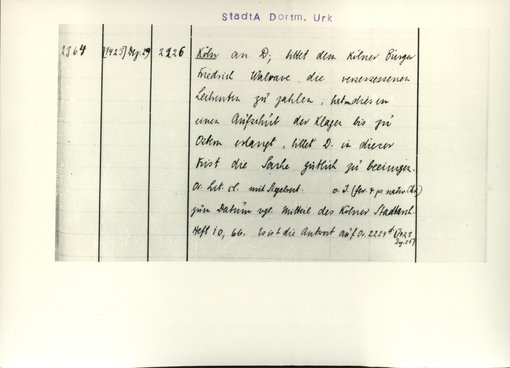 StadtA Dortm. Urk
2364 (1423) Dez. 29 2226 Köln an D., bittet dem Kölner Bürger
Friedrich Walrave die versessenen
Leibrenten zu zahlen, hat diesen
einen Aufschub der Klagen bis zu
Ostern erlangt, bittet D. in dieser
Frist die Sache gütlich zu
Or. lit. cl. mit o. J. (fer. 4 p. nativ.
zum Datum vgl. Mitteil des Kölner Stadtarch.
Heft 10, 66. Es ist die Antwort auf Or. 2224 (1423
Dez.